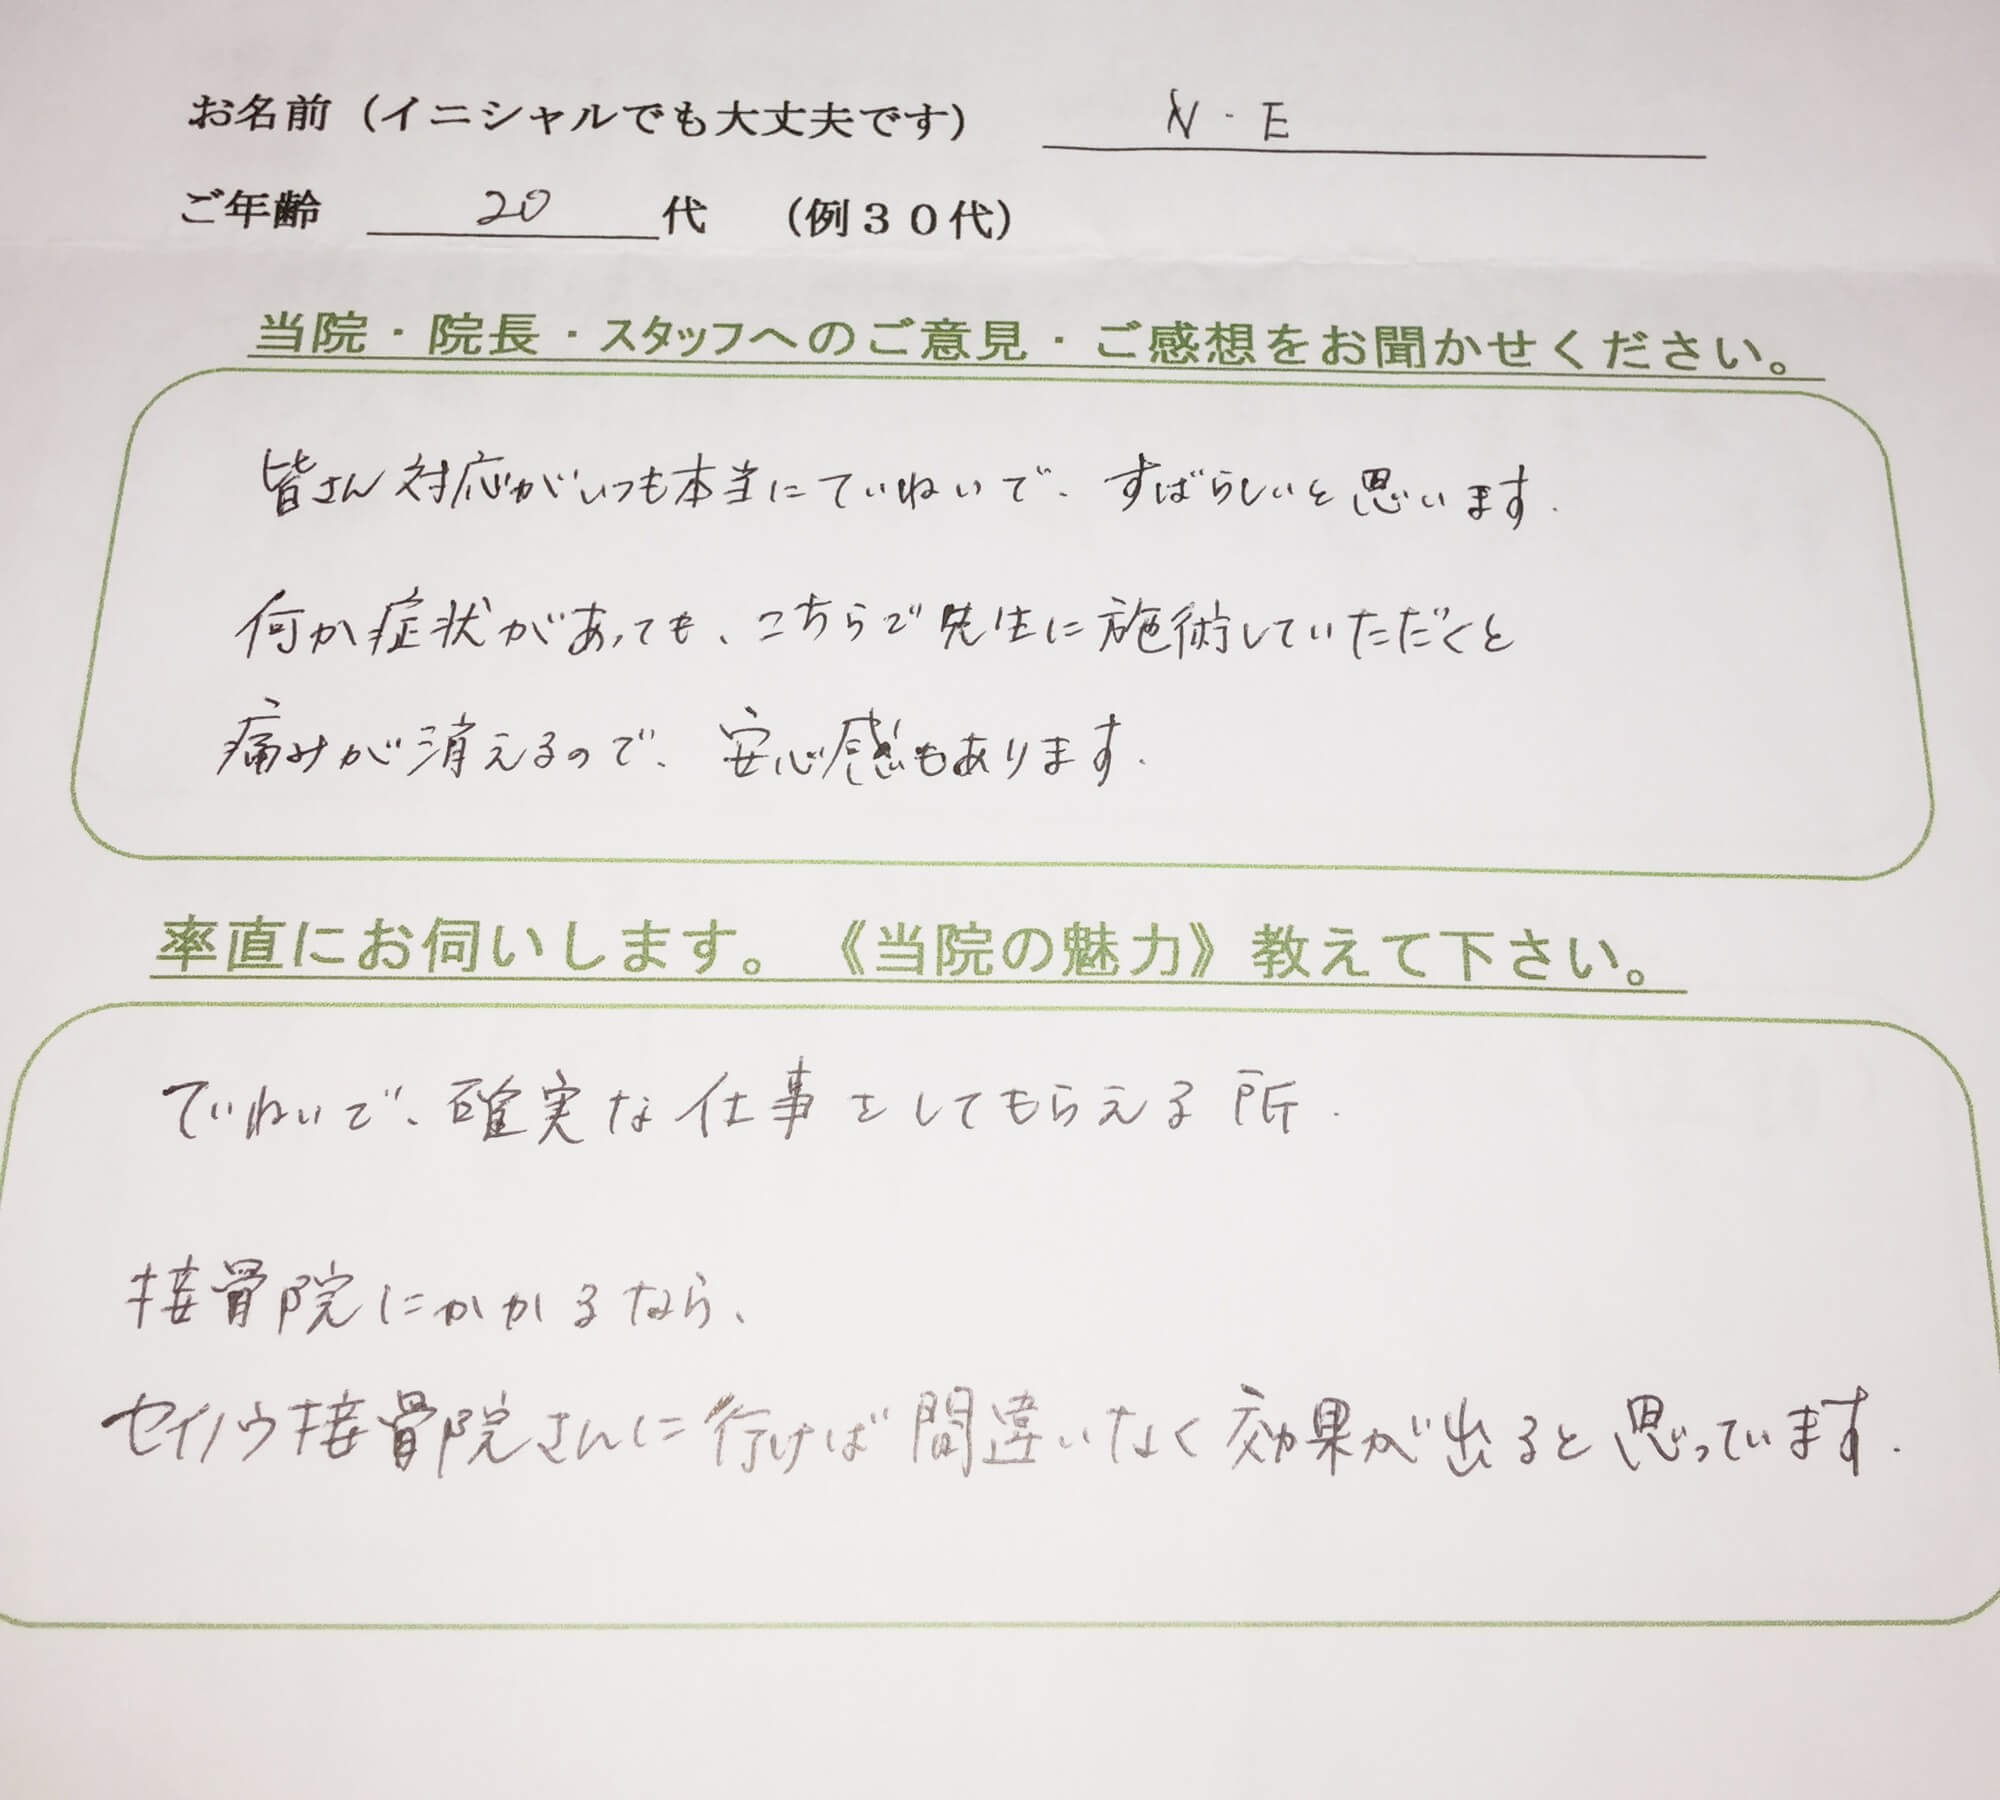 お名前（イニシャルでも大丈夫です） N・E
ご年齢 20 代 （例３０代）
当院・院長・スタッフへのご意見・ご感想をお聞かせください。
皆さん対応がいつも本当にていねいで、すばらしいと思います.
何か症状があっても、こちらで先生に施術していただくと
痛みが消えるので、安心感もあります.
率直にお伺いします。《当院の魅力》教えて下さい。
ていねいで、確実な仕事をしてもらえる所.
接骨院にかかるなら、
セイノウ接骨院さんに行けば間違いなく効果が出ると思っています.